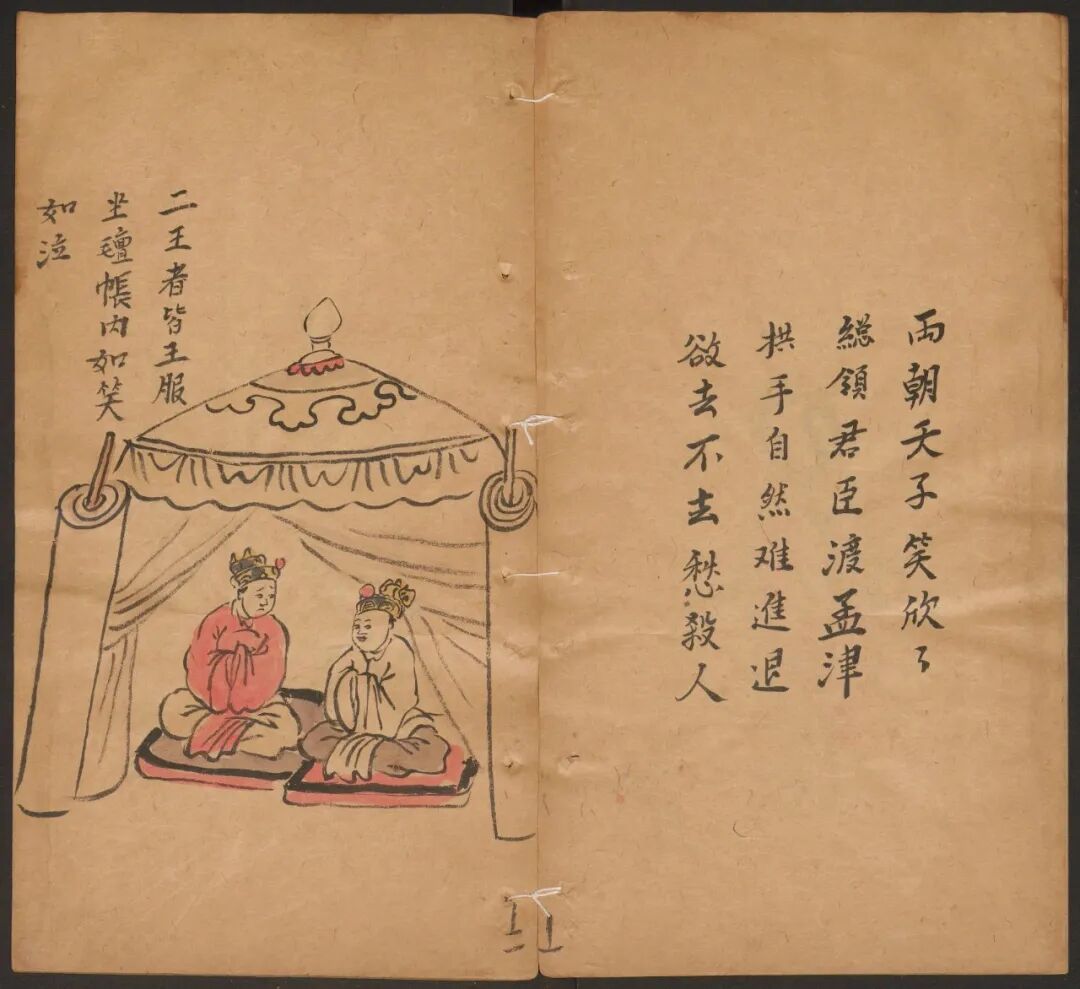 兩朝天子笑欣〻
緫領君臣渡孟津
拱手自然难進退
欲去不去愁殺人
二王者皆王服
坐氊帳内如笑
如泣